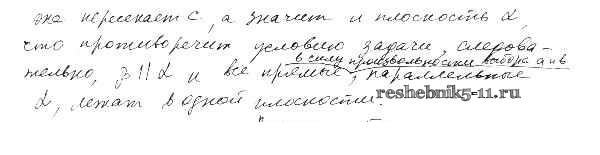 она пересекает с, а значит и плоскость α,
что противоречит условию задачи, следова-
в силу произвольности выбора а и в
тельно, β || α и все прямые, параллельные
α, лежат в одной плоскости.
reshebnik5-11.ru